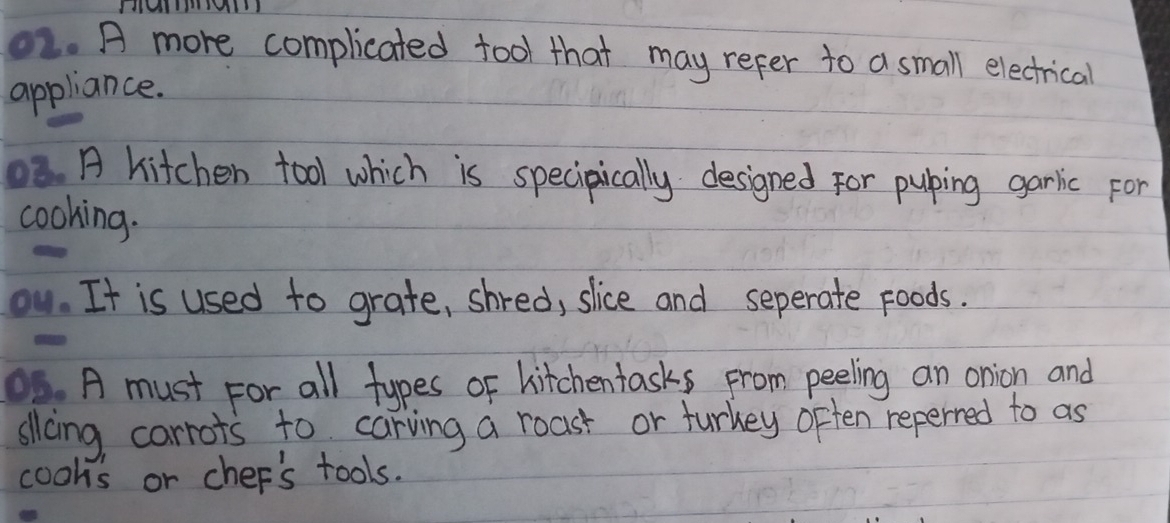 Aluminum
02. A more complicated tool that may refer to a small electrical
appliance.
03. A kitchen tool which is specipically designed for pulping garlic for
cooking.
04. It is used to grate, shred, slice and seperate foods.
05. A must for all types of kitchentasks from peeling an onion and
slicing carrots to carving a roast or turkey often reperred to as
cook's or chef's tools.